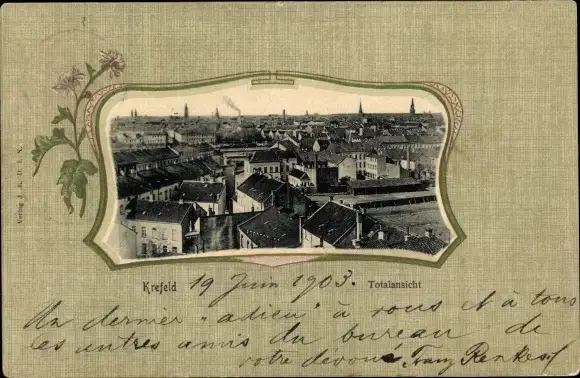 Verlag J. K. D. i. N.
Krefeld 19 Juin 1903. Totalansicht
Un dernier "adieu" à vous et à tous
les autres amis du bureau de
votre devoué Franz